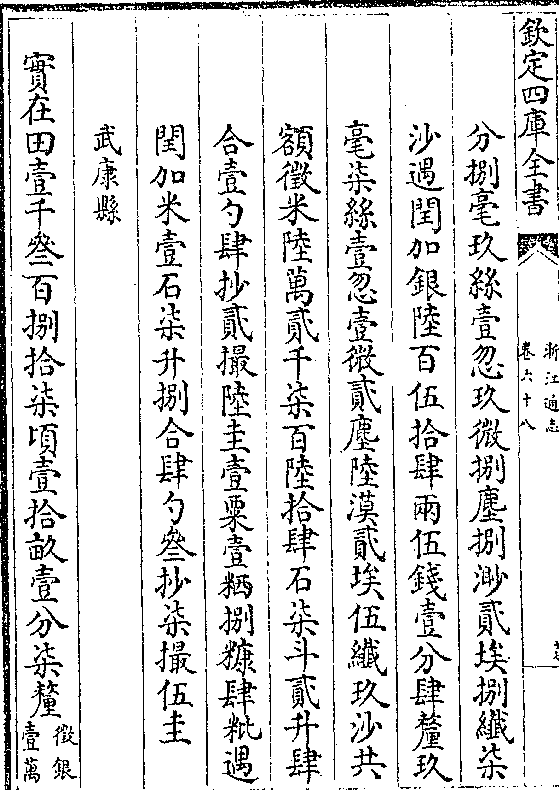 欽定四庫全書
浙江通志
卷六十八
分捌毫玖絲壹忽玖微捌塵捌渺貳埃捌纖柒
沙遇閏加銀陸百伍拾肆兩伍錢壹分肆釐玖
毫柒絲壹忽壹微貳塵陸漠貳埃伍纖玖沙共
額徵米陸萬貳千柒百陸拾肆石柒斗貳升肆
合壹勺肆抄貳撮陸圭壹粟壹粞捌糠肆粃遇
閏加米壹石柒升捌合肆勺叄抄柒撮伍圭
武康縣
實在田壹千叄百捌拾柒頃壹拾畝壹分柒釐
徵銀
壹萬